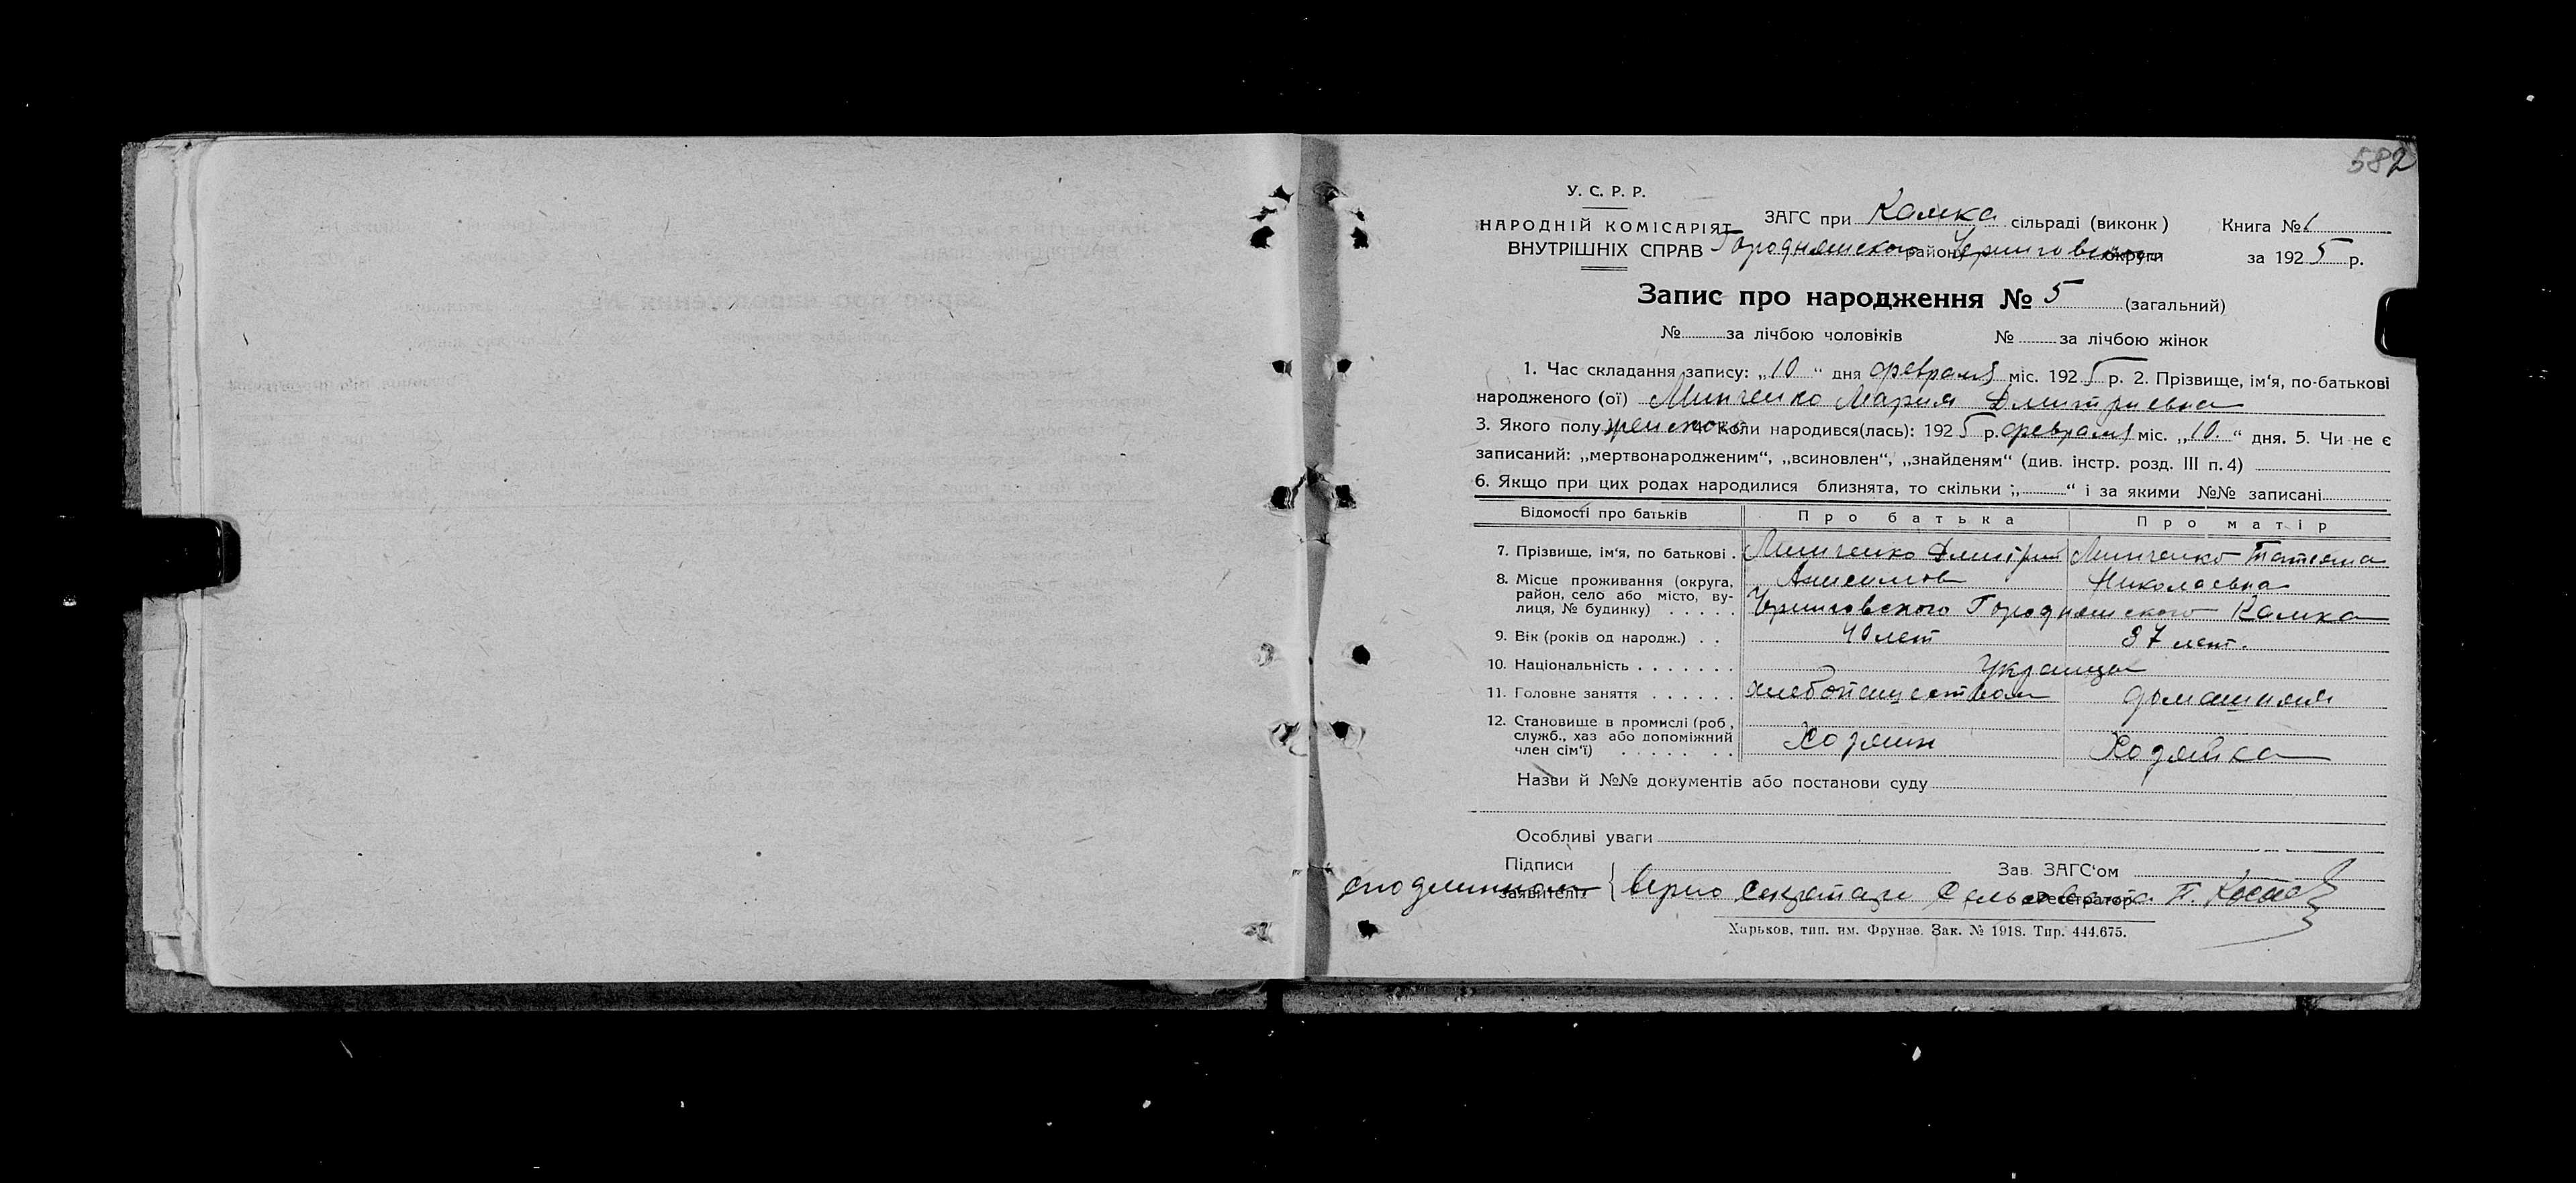 582
У. С. Р. Р.
НАРОДНІЙ КОМІСАРІЯТ
ВНУТРІШНІХ СПРАВ
ЗАГС при Камка сільраді (виконк)
Городнянского район Черниговского округи
Книга № 1
за 1925 р.
Запис про народження № 5 (загальний)
№ за лічбою чоловіків № за лічбою жінок
1. Час складання запису: „10“ дня февраля міс. 1925 р. 2. Прізвище, ім‘я, по-батькові
народженого (ої) Минченко Мария Дмитриевна
3. Якого полу женского 4. Коли народився(лась): 1925 р. февраля міс. „10.“ дня. 5. Чи не є
записаний: „мертвонародженим“, „всиновлен“, „знайденям“ (див. інстр. розд. III п. 4)
6. Якщо при цих родах народилися близнята, то скільки „ “ і за якими №№ записані
Відомості про батьків Про батька Про матір
7. Прізвище, ім‘я, по батькові . Минченко Дмитрий Минченко Татияна
Анисимов Николаевна
8. Місце проживання (округа,
район, село або місто, ву-
лиця, № будинку) . . . . . Черниговского Городнянского Камка
9. Вік (років од народж.) . . 40 лет 37 лет.
10. Національність . . . . . . . Украинцы
11. Головне заняття . . . . . . хлебопашеством домашняя
12. Становище в промислі (роб.,
служб., хаз або допоміжний
член сім‘ї) . . . . . . . . Хозяин Хозяйка
Назви й №№ документів або постанови суду
Особливі уваги
Підписи
заявителів
Зав. ЗАГС‘ом
Реєстратор
с подлинным верно Секретарь Сельсовета П.
Харьков, тип. им. Фрунзе. Зак. № 1918. Тир. 444.675.